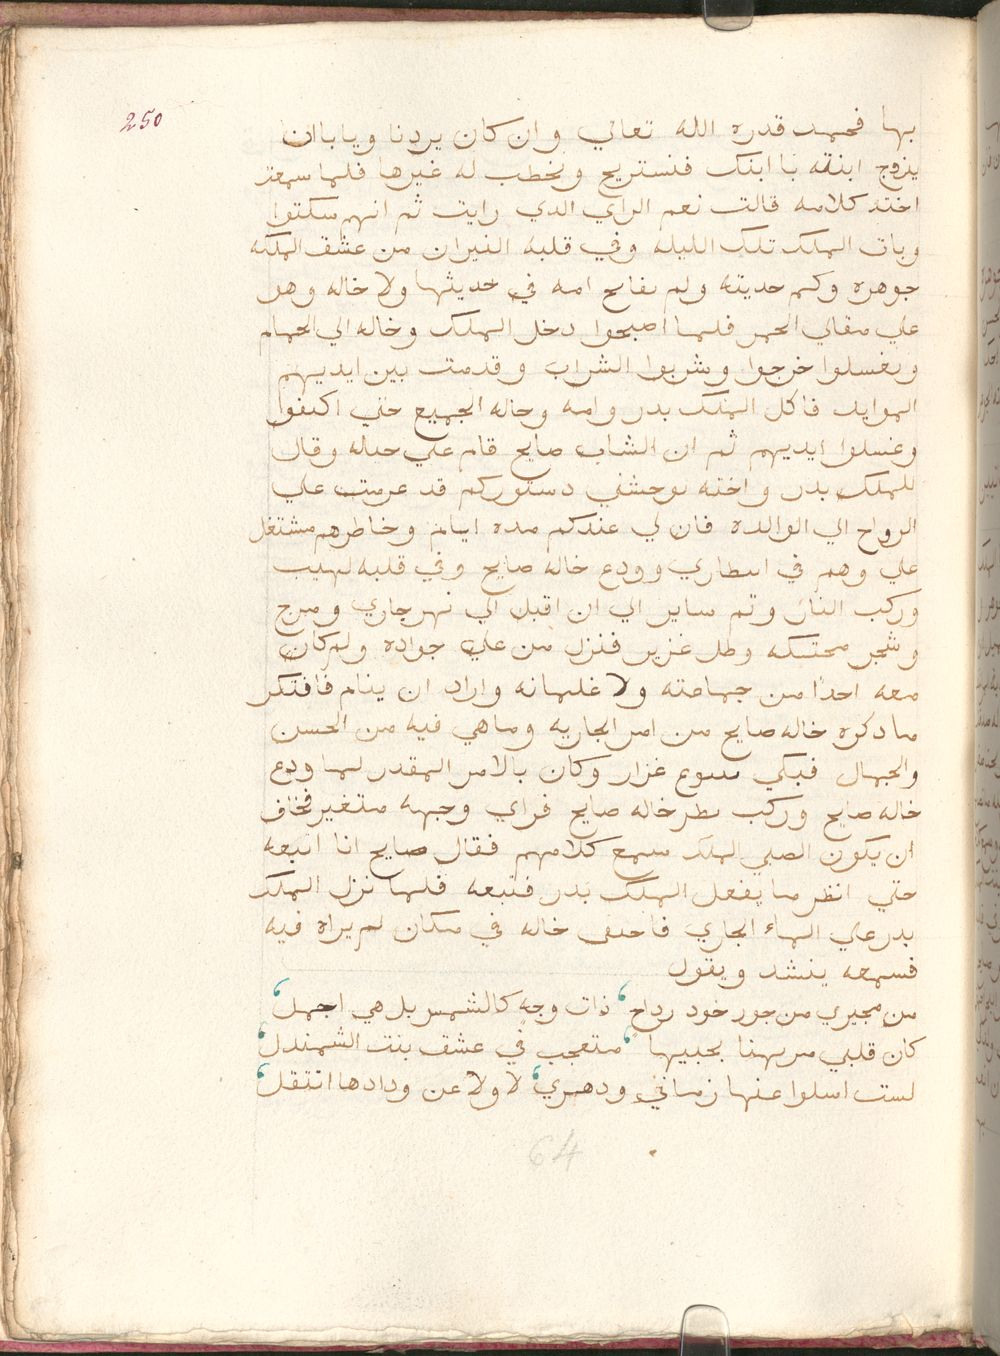 250
بها فحمد قدره الله تعالي وان كان يردنا ويابا ان
يزوج ابنته با ابنك فنستريح ونخطب له غيرها فلما سمعت
اخته كلامه قالت نعم الراي الدي رايت ثم انهم سكتوا
وبات الملك تلك الليله وفي قلبه النيران من عشق الملكه
جوهره وكتم حديته ولم يفاتح امه في حديثها ولا خاله وهو
علي مقالي الجمر فلما اصبحوا دخل الملك وخاله الي الحمام
وتغسلوا خرجوا وشربوا الشراب وقدمت بين ايديهم
الموايد فاكل الملك بدر وامه وخاله الجميع حتي اكتفوا
وغسلوا ايديهم ثم ان الشاب صايح قام علي حيله وقال
للملك بدر واخته توحشني دستوركم قد عزمت علي
الرواح الي الوالده فان لي عندكم مده ايام وخاطرهم مشتغل
علي وهم في انتظاري وودع خاله صايح وفي قلبه لهيب
وركب النار وتم ساير الي ان اقبل الي نهر جاري ومرج
وشجر محتبكه وظل غزير فنزل من علي جواده ولم كان
معه احدا من جماعته ولا غلمانه واراد ان ينام فافتكر
ما دكره خاله صايح من امر الجاريه وما هي فيه من الحسن
والجمال فبكي بدموع غزار وكان بالامر المقدر لما ودع
خاله صايح وركب نظر خاله صايح فراي وجهه متغير فخاف
ان يكون الصبي الملك سمع كلامهم فقال صايح انا اتبعه
حتي انظر ما يفعل الملك بدر فتبعه فلما نزل الملك
بدر علي الماء الجاري فاختفي خاله في مكان لم يراه فيه
فسمعه ينشد ويقول
من مجيري من جور خود رداح ‘ ذات وجه كالشمس بل هي اجمل ‘
كان قلبي مرتهنا بحبيبها ‘ متعجب في عشق بنت الشمندل ‘
لست اسلوا عنها زماني ودهري ‘ لا ولا عن ودادها انتقل ‘
64